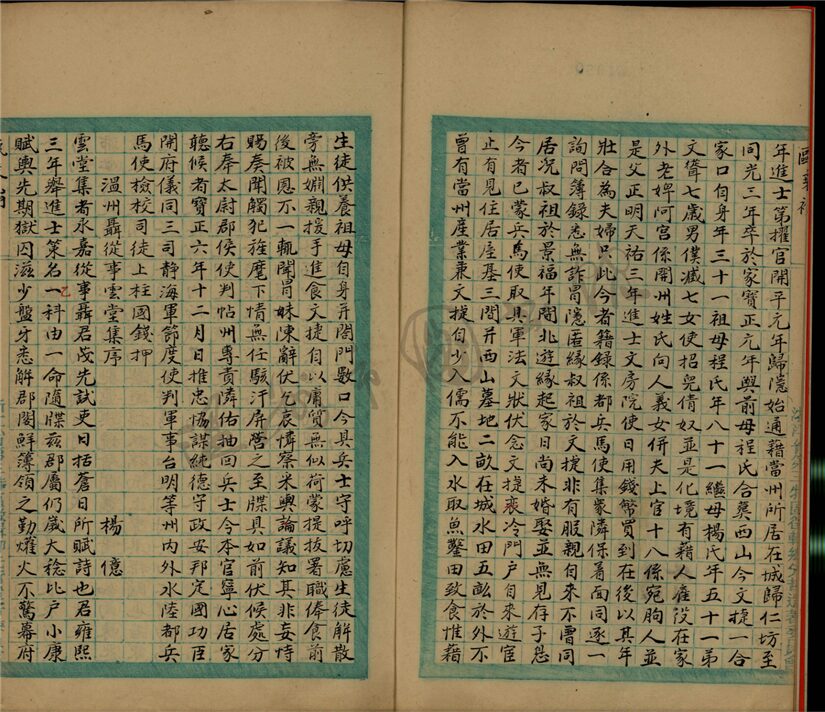 年進士第擢官開平元年歸隱始通籍當州所居在城歸仁坊至
同光三年卒於家寶正元年與前母程氏合葬西山今文捷一合
家口自身年三十一祖母程氏年八十一繼母楊氏年五十一弟
文聳七歲男僕臧七女使招兒倩奴並是化境有籍人雇役在家
外老婢阿宫係閩州姓氏向人義女併夫上官十八係宛朐人並
是父正明天祐三年進士文房院使日用錢幣買到在後以其年
壯合為夫婦只此今者籍錄係都兵馬使集衆隣保着面同逐一
詢問簿錄悉無詐冒隱匿緣叔祖於文捷非有服親自來不曾同
居況叔祖於景福年間北遊緣起家日尚未婚娶並無見存子息
今者已蒙兵馬使取具軍法文狀伏念文捷衰冷門戸自來遊宦
止有見住居屋基三間并西山墓地二畝在城水田五畝於外不
曾有當州産業兼文捷自少入儒不能入水取魚鑿田致食惟藉
生徒供養祖母自身并閤門數口今具兵士守呼切慮生徒解散
旁無婣親援手進食文捷自以庸質無似荷蒙提拔署職俸食前
後被恩不一輒開胃妹陳辭伏乞哀憐察米輿論議知其非妄恃
賜奏聞觸犯旌麾下情無任駭汗屏營之至牒具如前伏候處分
右奉太尉郡侯使判帖州專責隣佑抽回兵士今本官寧心居家
聽候者寶正六年十二月日推忠協謀純德守政安邦定國功臣
開府儀同三司静海軍節度使判軍事台明等州内外水陸都兵
馬使檢校司徒上柱國錢押
温州聶從事雲堂集序 楊億
雲堂集者永嘉從事聶君茂先試吏日括蒼日所賦詩也君雍熙
三年舉進士策名一科由一命隨牒兹郡屬仍歲大稔比戸小康
賦輿先期獄囚滋少盤牙悉解郡閣鮮簿領之勤燿火不驚幕府